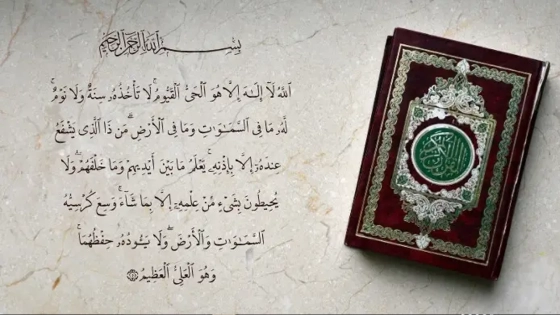 بِسْمِ اللَّهِ الرَّحْمَٰنِ الرَّحِيمِ
اللَّهُ لَا إِلَٰهَ إِلَّا هُوَ الْحَيُّ الْقَيُّومُ ۚ لَا تَأْخُذُهُ سِنَةٌ وَلَا نَوْمٌ ۚ
لَّهُ مَا فِي السَّمَاوَاتِ وَمَا فِي الْأَرْضِ ۗ مَن ذَا الَّذِي يَشْفَعُ
عِندَهُ إِلَّا بِإِذْنِهِ ۚ يَعْلَمُ مَا بَيْنَ أَيْدِيهِمْ وَمَا خَلْفَهُمْ ۖ وَلَا
يُحِيطُونَ بِشَيْءٍ مِّنْ عِلْمِهِ إِلَّا بِمَا شَاءَ ۚ وَسِعَ كُرْسِيُّهُ
السَّمَاوَاتِ وَالْأَرْضَ ۖ وَلَا يَئُودُهُ حِفْظُهُمَا ۚ
وَهُوَ الْعَلِيُّ الْعَظِيمُ